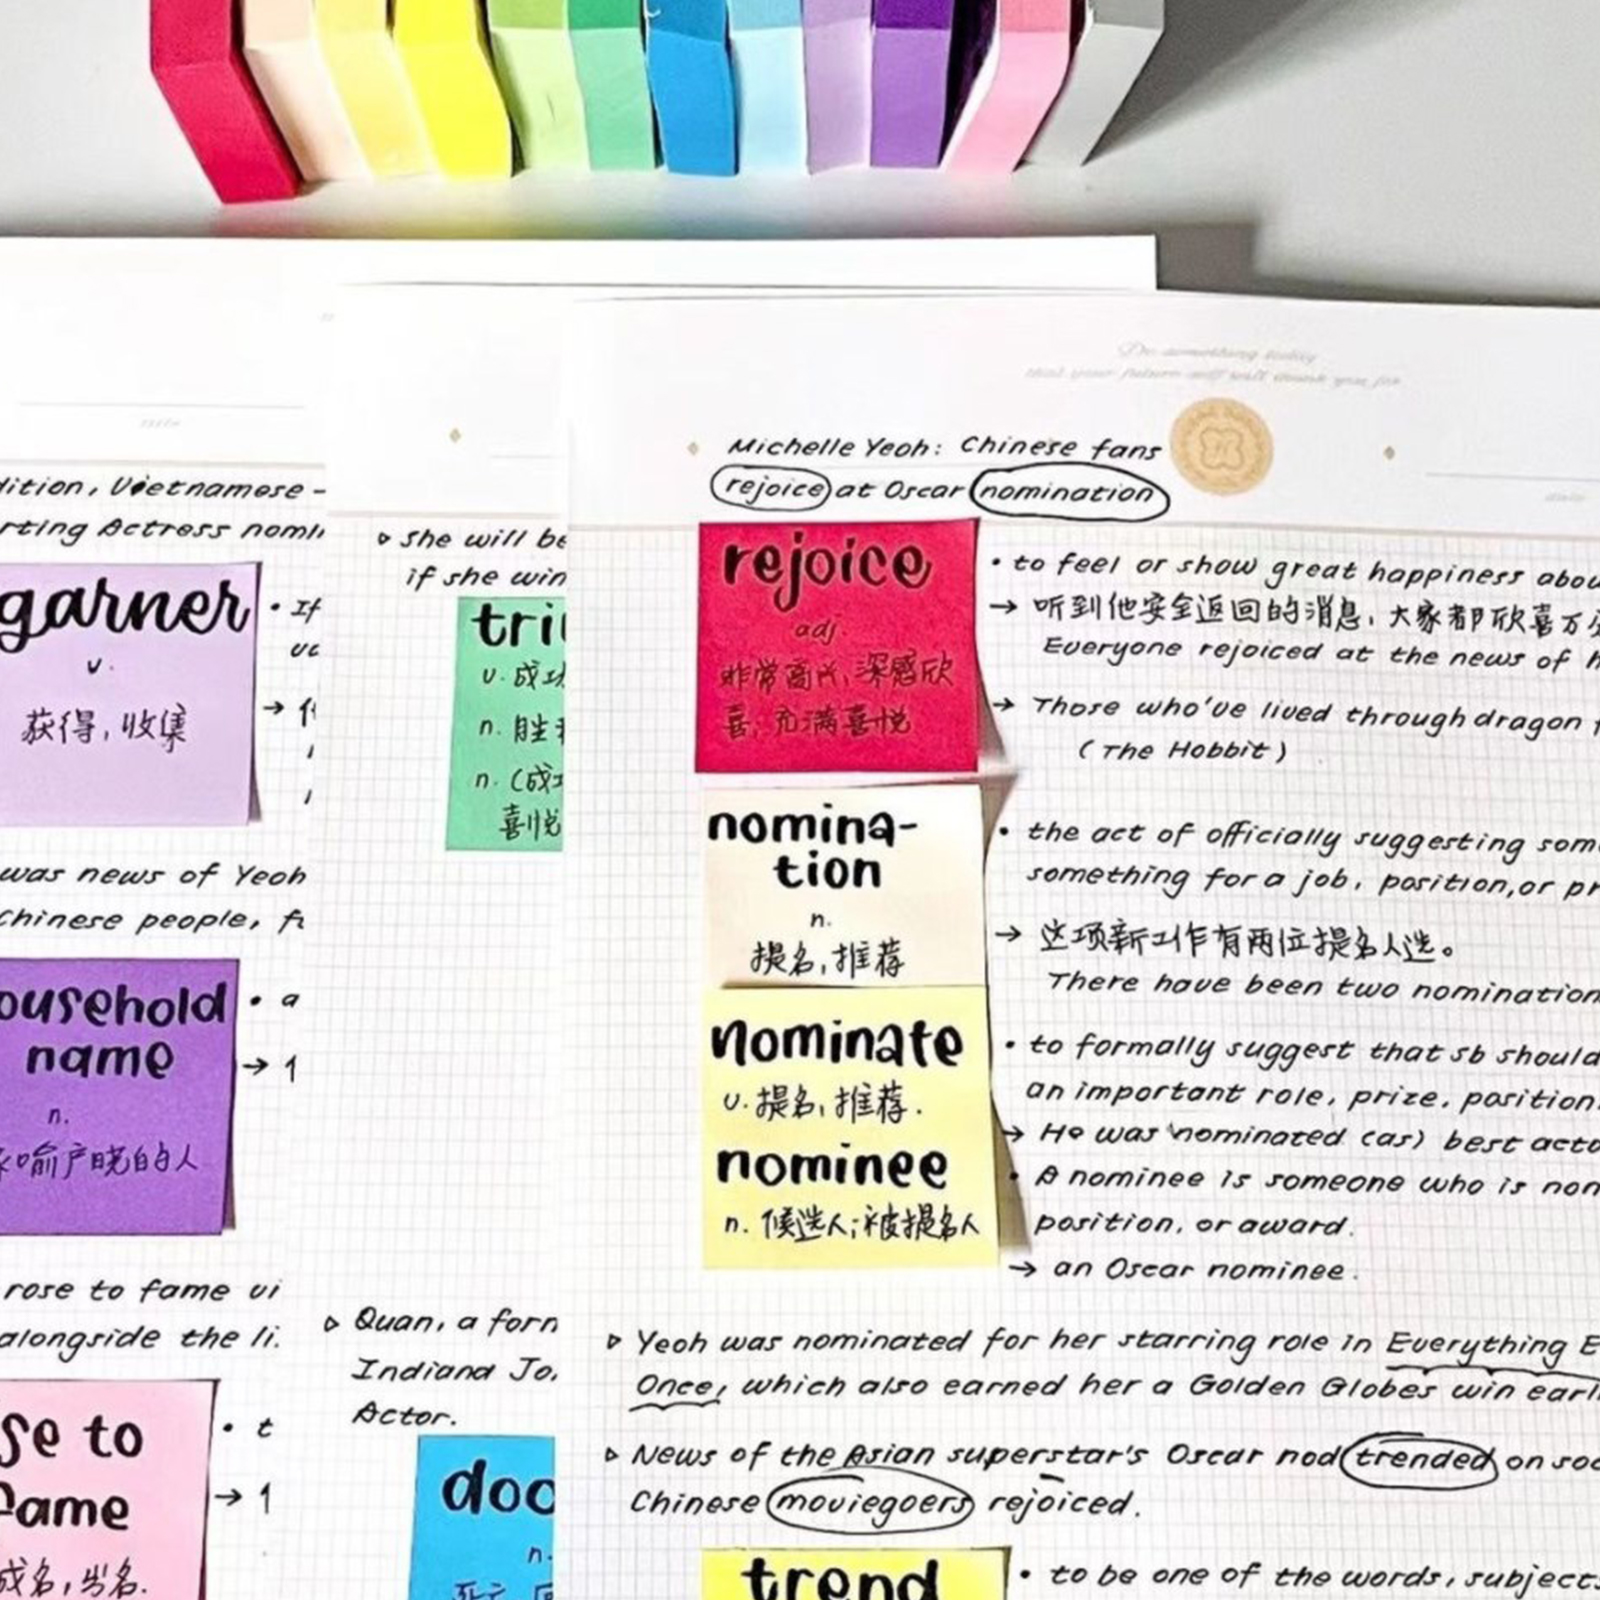 dition, Vietnamese -
rting Actress nomi
garner
v.
获得, 收集
• If
→
was news of Yeoh
Chinese people, f
ousehold
name
n.
家喻户晓的人
• a
→
rose to fame vi
alongside the li.
se to
fame
成名, 出名.
• t
→
▹ She will be
if she win
tri
v. 成功
n. 胜利
n. (成功
喜悦
▹ Quan, a form
Indiana Jo.
Actor.
doo
n.
Do something today
that your future self will thank you for
Michelle Yeoh: Chinese fans
rejoice at Oscar nomination
rejoice
adj.
非常高兴, 深感欣
喜, 充满喜悦
• to feel or show great happiness abou
→ 听到他安全返回的消息, 大家都欣喜万分
Everyone rejoiced at the news of h
→ Those who've lived through dragon f
(The Hobbit)
nomina-
tion
n.
提名, 推荐
• the act of officially suggesting som
something for a job, position, or pr
→ 这项新工作有两位提名人选。
There have been two nomination
nominate
v. 提名, 推荐.
nominee
n. 候选人; 被提名人
• to formally suggest that sb should
an important role, prize, position.
→ He was nominated (as) best acto
• A nominee is someone who is nom
position, or award.
→ an Oscar nominee.
▹ Yeoh was nominated for her starring role in Everything E
Once, which also earned her a Golden Globes win earli
▹ News of the Asian superstar's Oscar nod trended on soc
Chinese moviegoers rejoiced.
trend
• to be one of the words, subjects